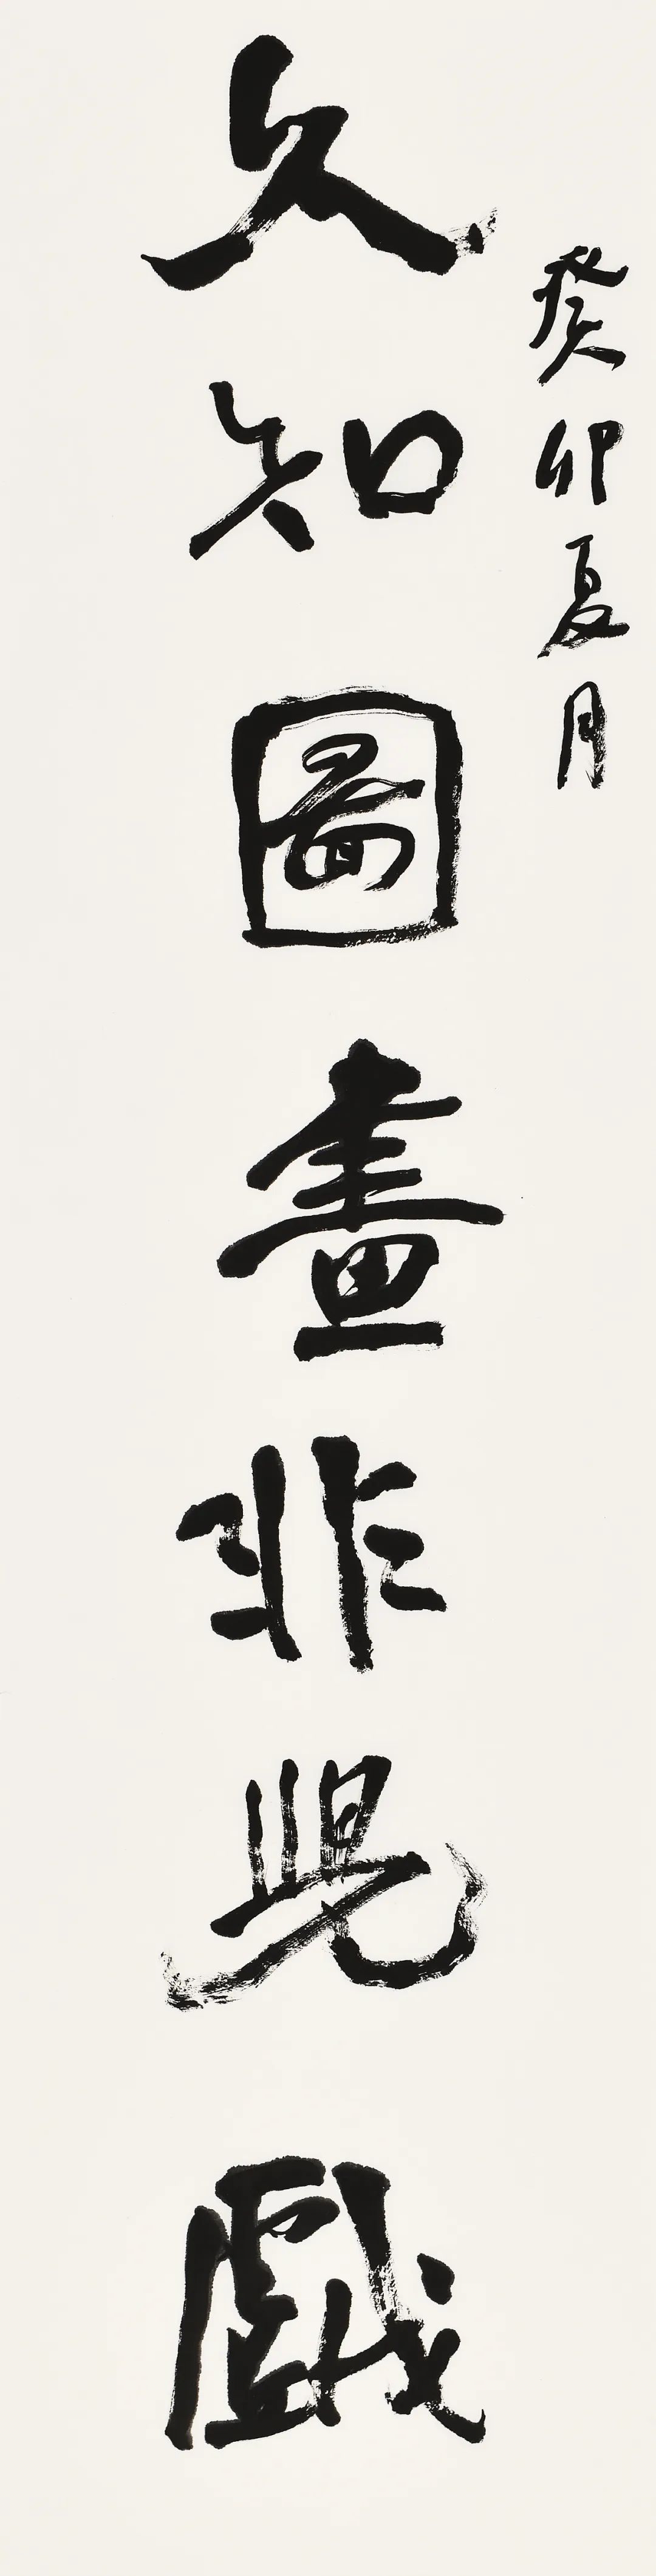 癸卯夏月
久知圖畫非兒戲